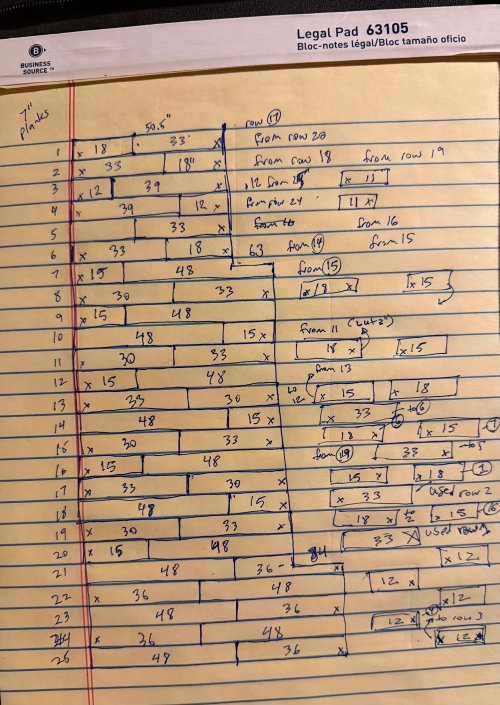 Legal Pad 63105
Bloc-notes légal/Bloc tamaño oficio
B
BUSINESS
SOURCE™
7"
planks
50.5" row 17
1 x 18 33 x from row 20
2 x 33 18" x from row 18 from row 19
3 x 12 39 12 from x 13
4 x 39 12 x 24 11 x
5 33 x from 16 from 16
6 x 33 18 x 63 from 14 from 15
7 x 15 48 from 15
8 x 30 33 x x 18 x x 15
9 x 15 48
10 48 15 x from 11 (cut 2")
11 x 30 33 x 18 x x 15
12 x 15 48 from 13
13 x 33 30 x to 12 x 15 x 18
14 48 15 x x 33 to 6
15 x 30 33 x 18 x x 15
16 x 15 48 from 33 x to 5
17 x 33 30 x 15 x x 18 1
18 48 15 x x 33 used row 2
19 x 30 33 x 18 x to 2 x 15
20 x 15 48 84 33 used row
21 48 36 x 12
22 x 36 48 12 x
23 48 36 x x 12
24 x 36 48 12 x to row 3
25 48 36 x x 12 x